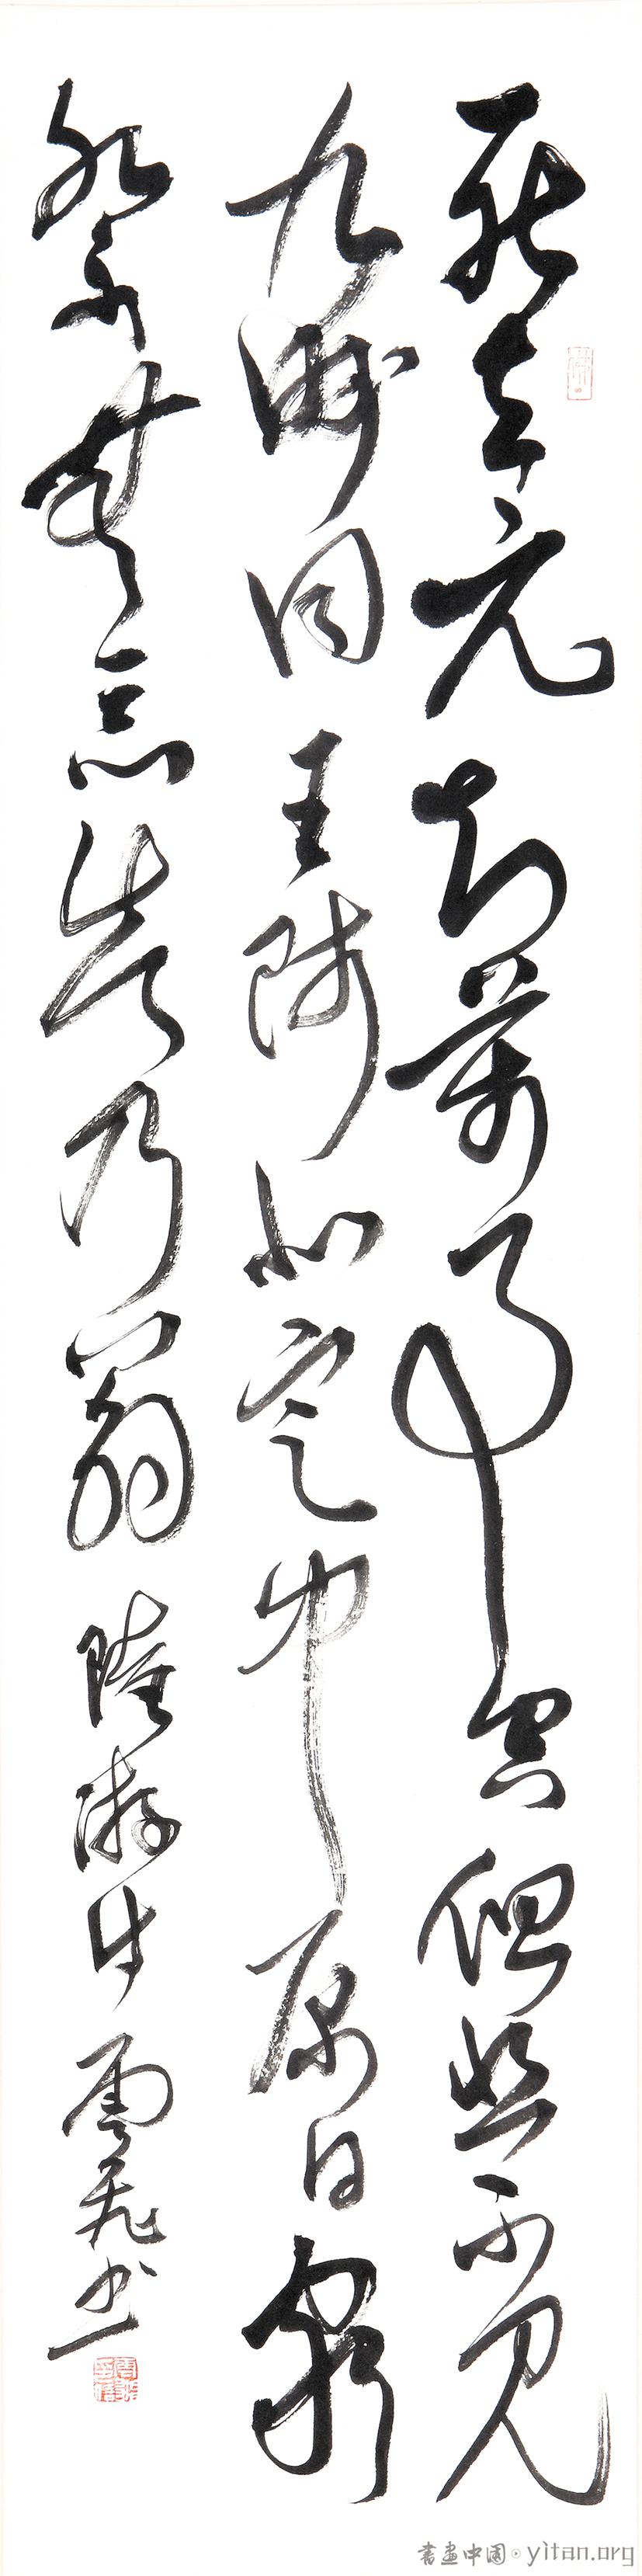 死去元知萬事空但悲不見
九州同王師北定中原日家
祭無忘告乃翁 陸游詩 雲飛書
書畫中國·yitan.org